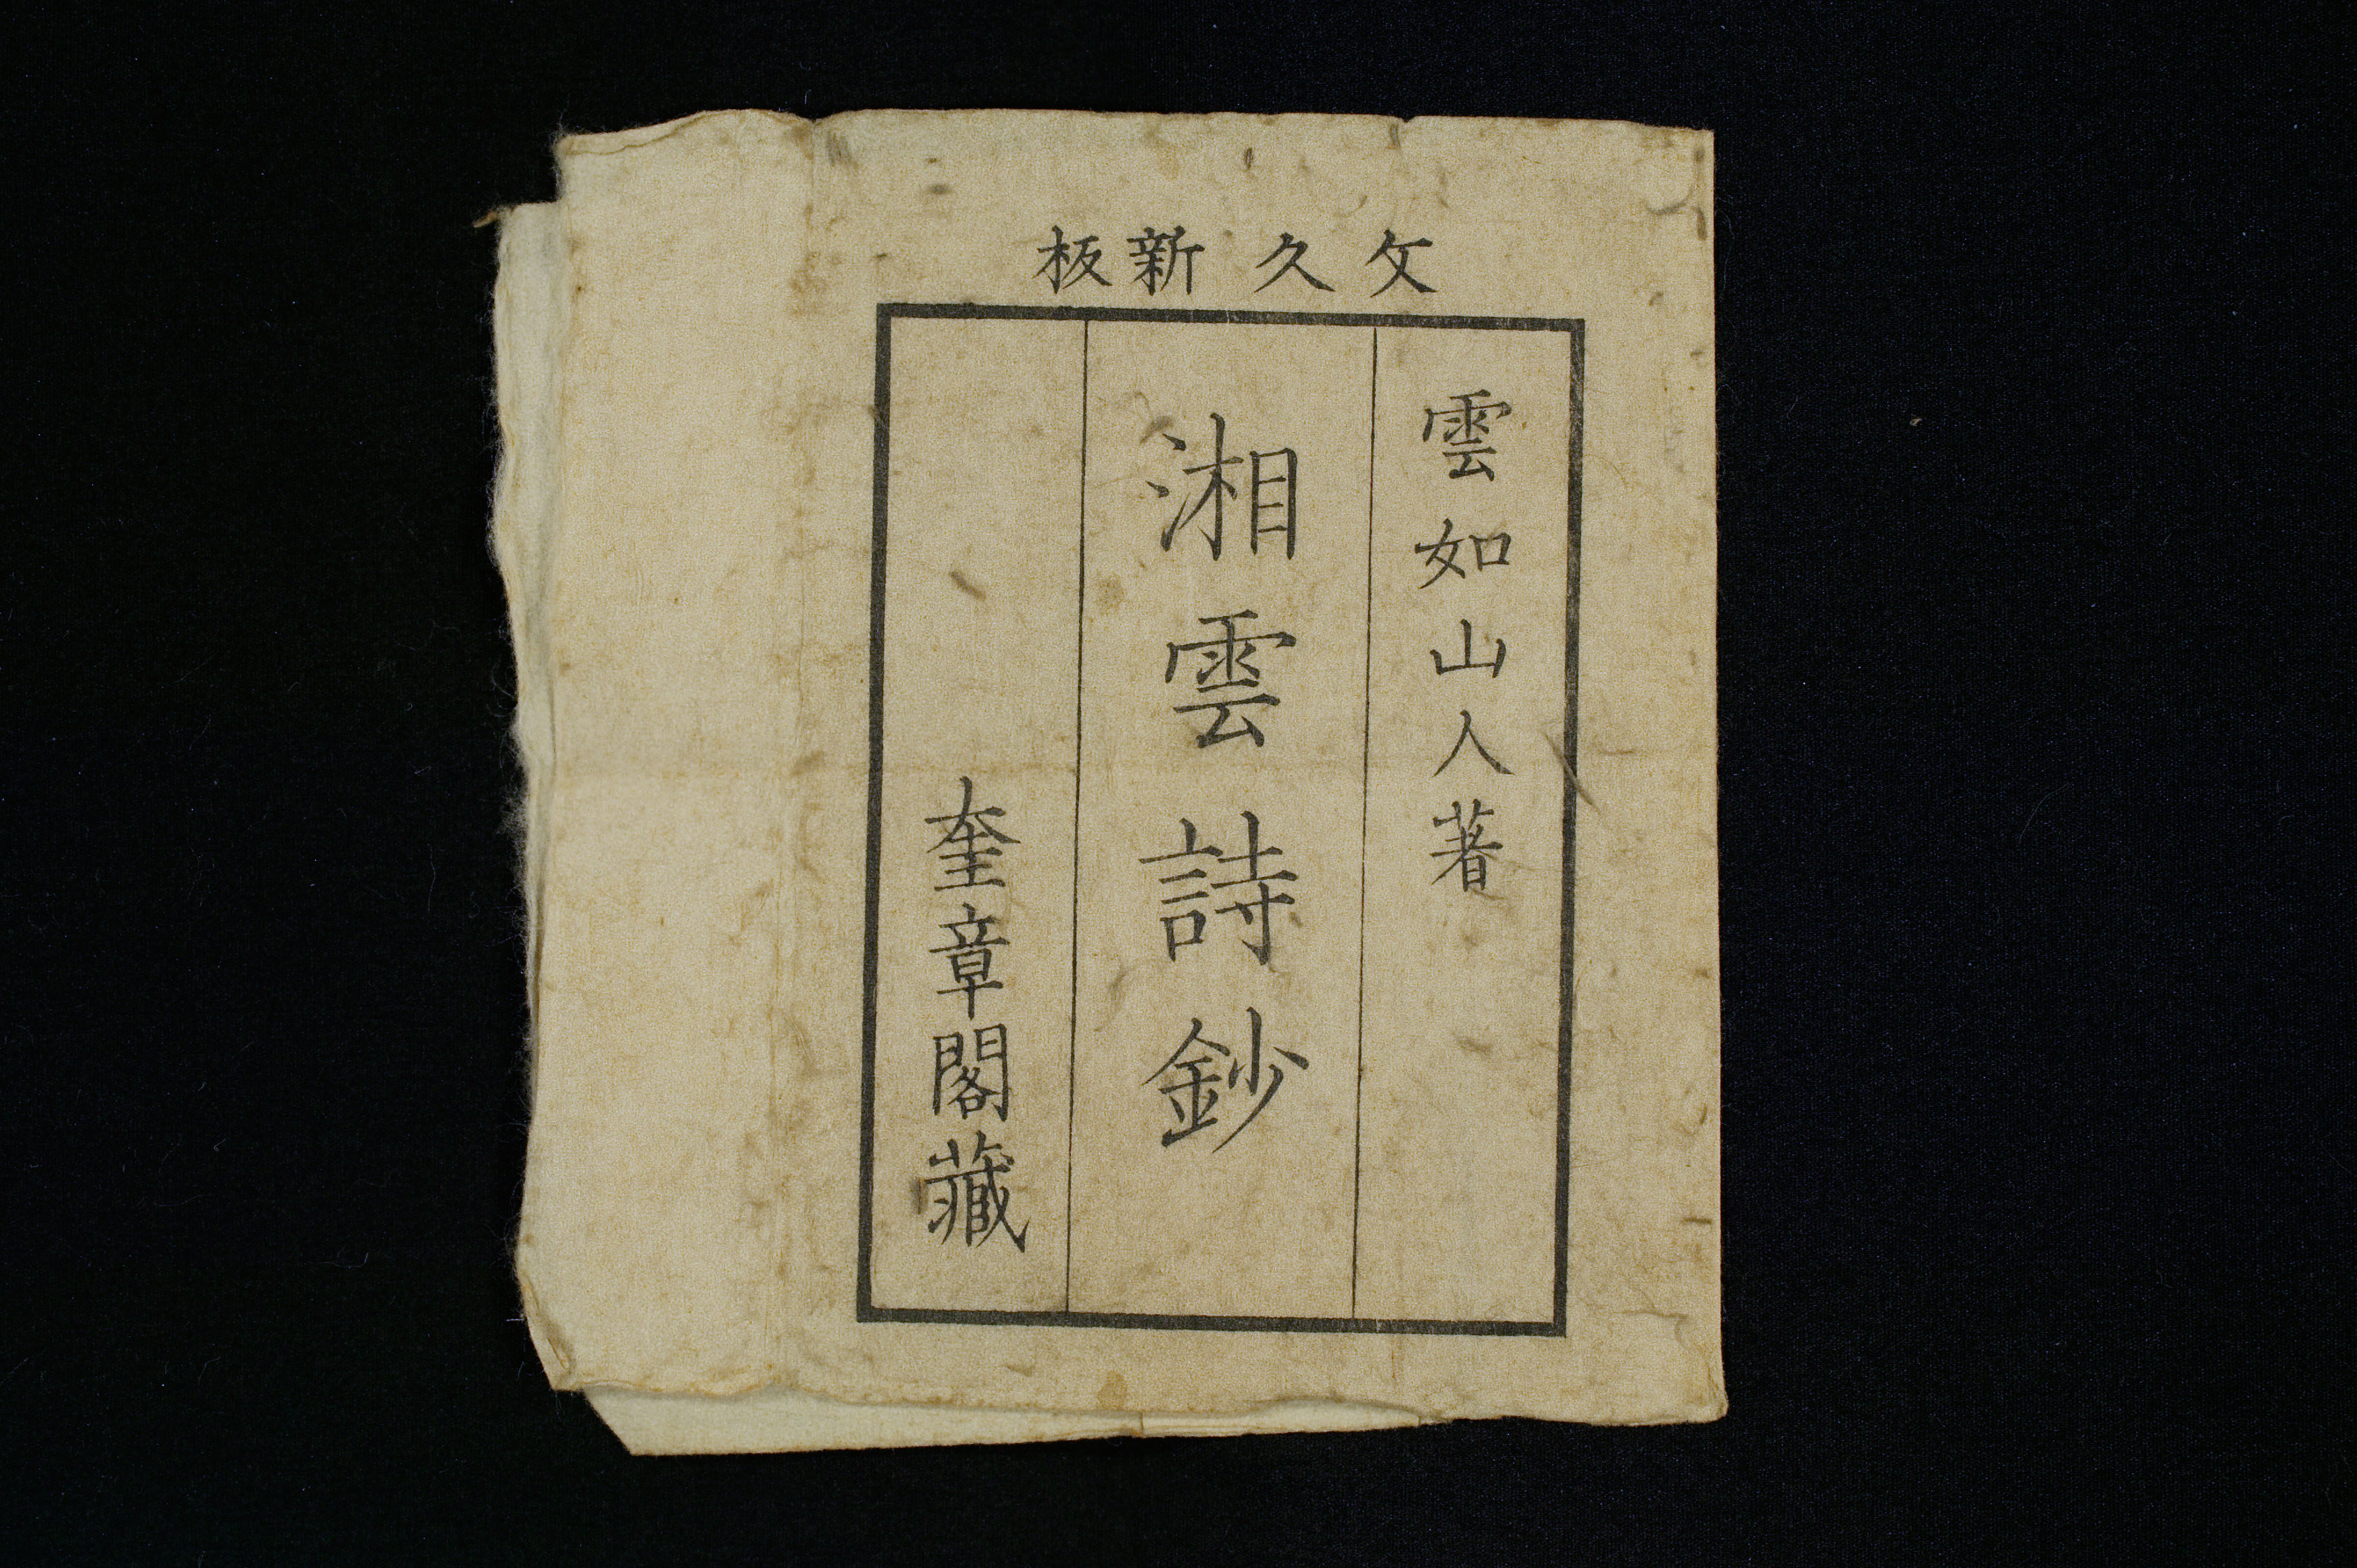 文久新板
雲如山人著
湘雲詩鈔
奎章閣藏